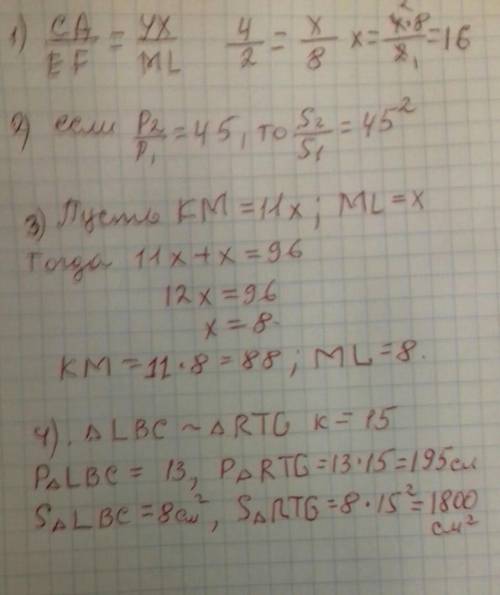 1) CA/EF = YX/ML 4/2 = x/8 x = 4·8/2 = 16
2) если P2/P1 = 45, то S2/S1 = 45²
3) Пусть KM = 11x; ML = x
Тогда 11x + x = 96
12x = 96
x = 8.
KM = 11·8 = 88; ML = 8.
4). △LBC ~ △RTG к = 15
P△LBC = 13, P△RTG = 13·15 = 195см
S△LBC = 8см², S△RTG = 8·15² = 1800
см²